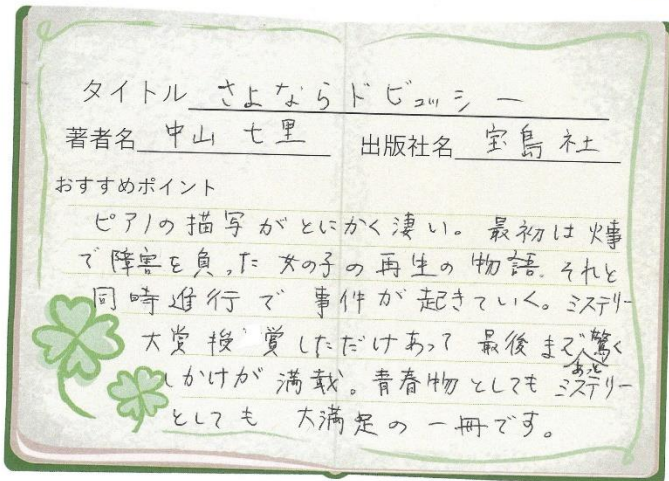 タイトル さよならドビュッシー
著者名 中山 七里 出版社名 宝島社
おすすめポイント
ピアノの描写がとにかく凄い。最初は火事
で障害を負った女の子の再生の物語。それと
同時進行で事件が起きていく。ミステリー
大賞 賞しただけあって最後まであっと驚く
しかけが満載。青春物としてもミステリー
としても大満足の一冊です。